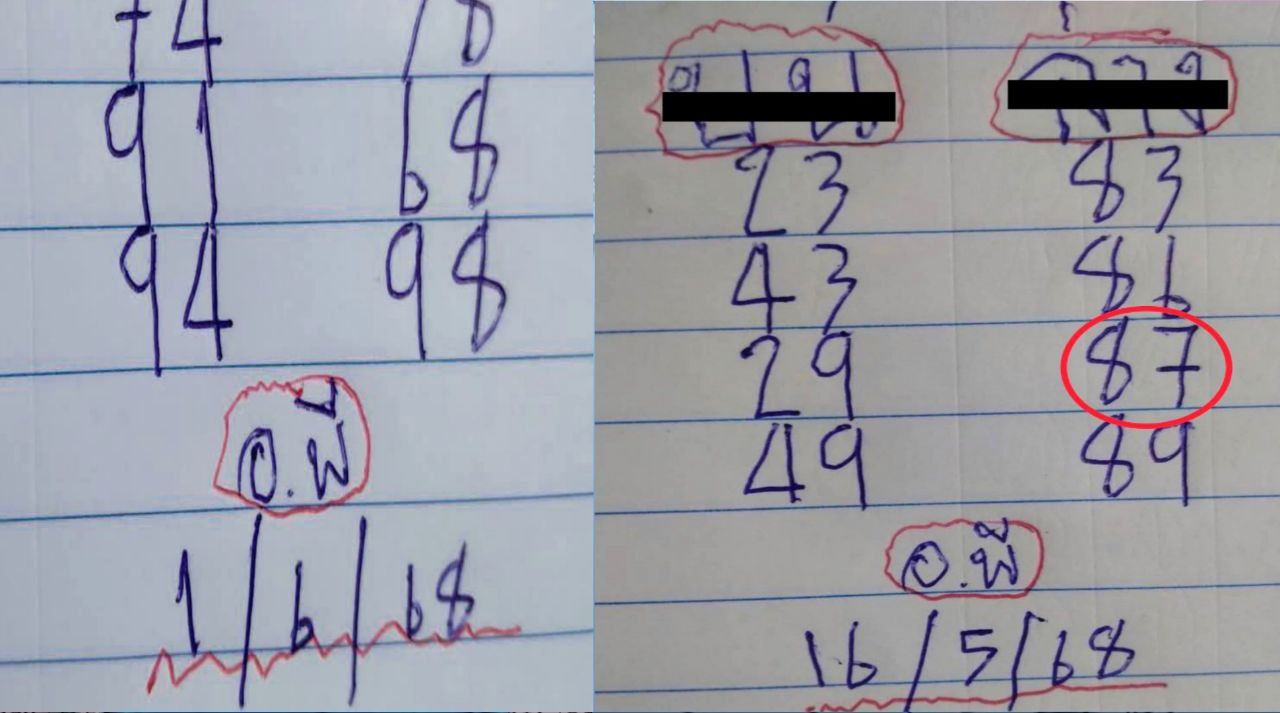 91 68
94 98
อ.พี
1/6/68
23 83
43 86
29 87
49 89
อ.พี
16/5/68